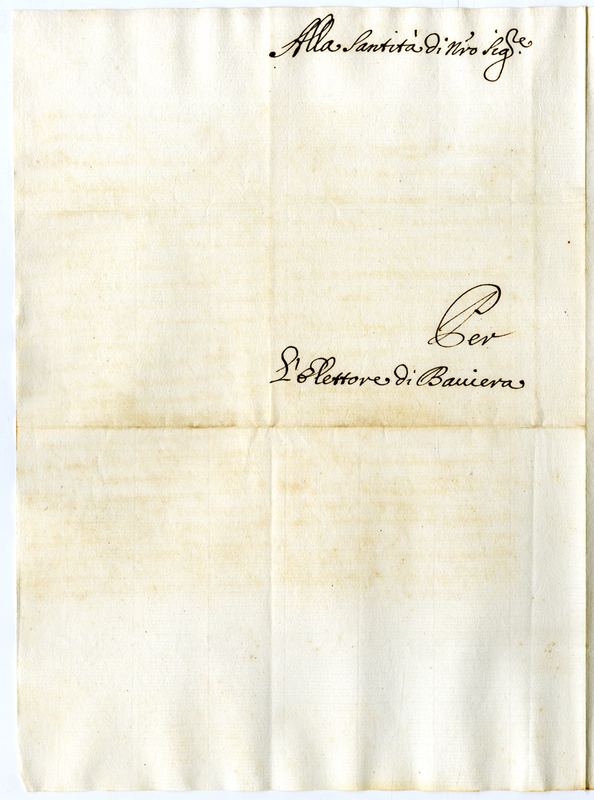 Alla Santità di Nro Sig.re
Per
L'Elettore di Bauiera